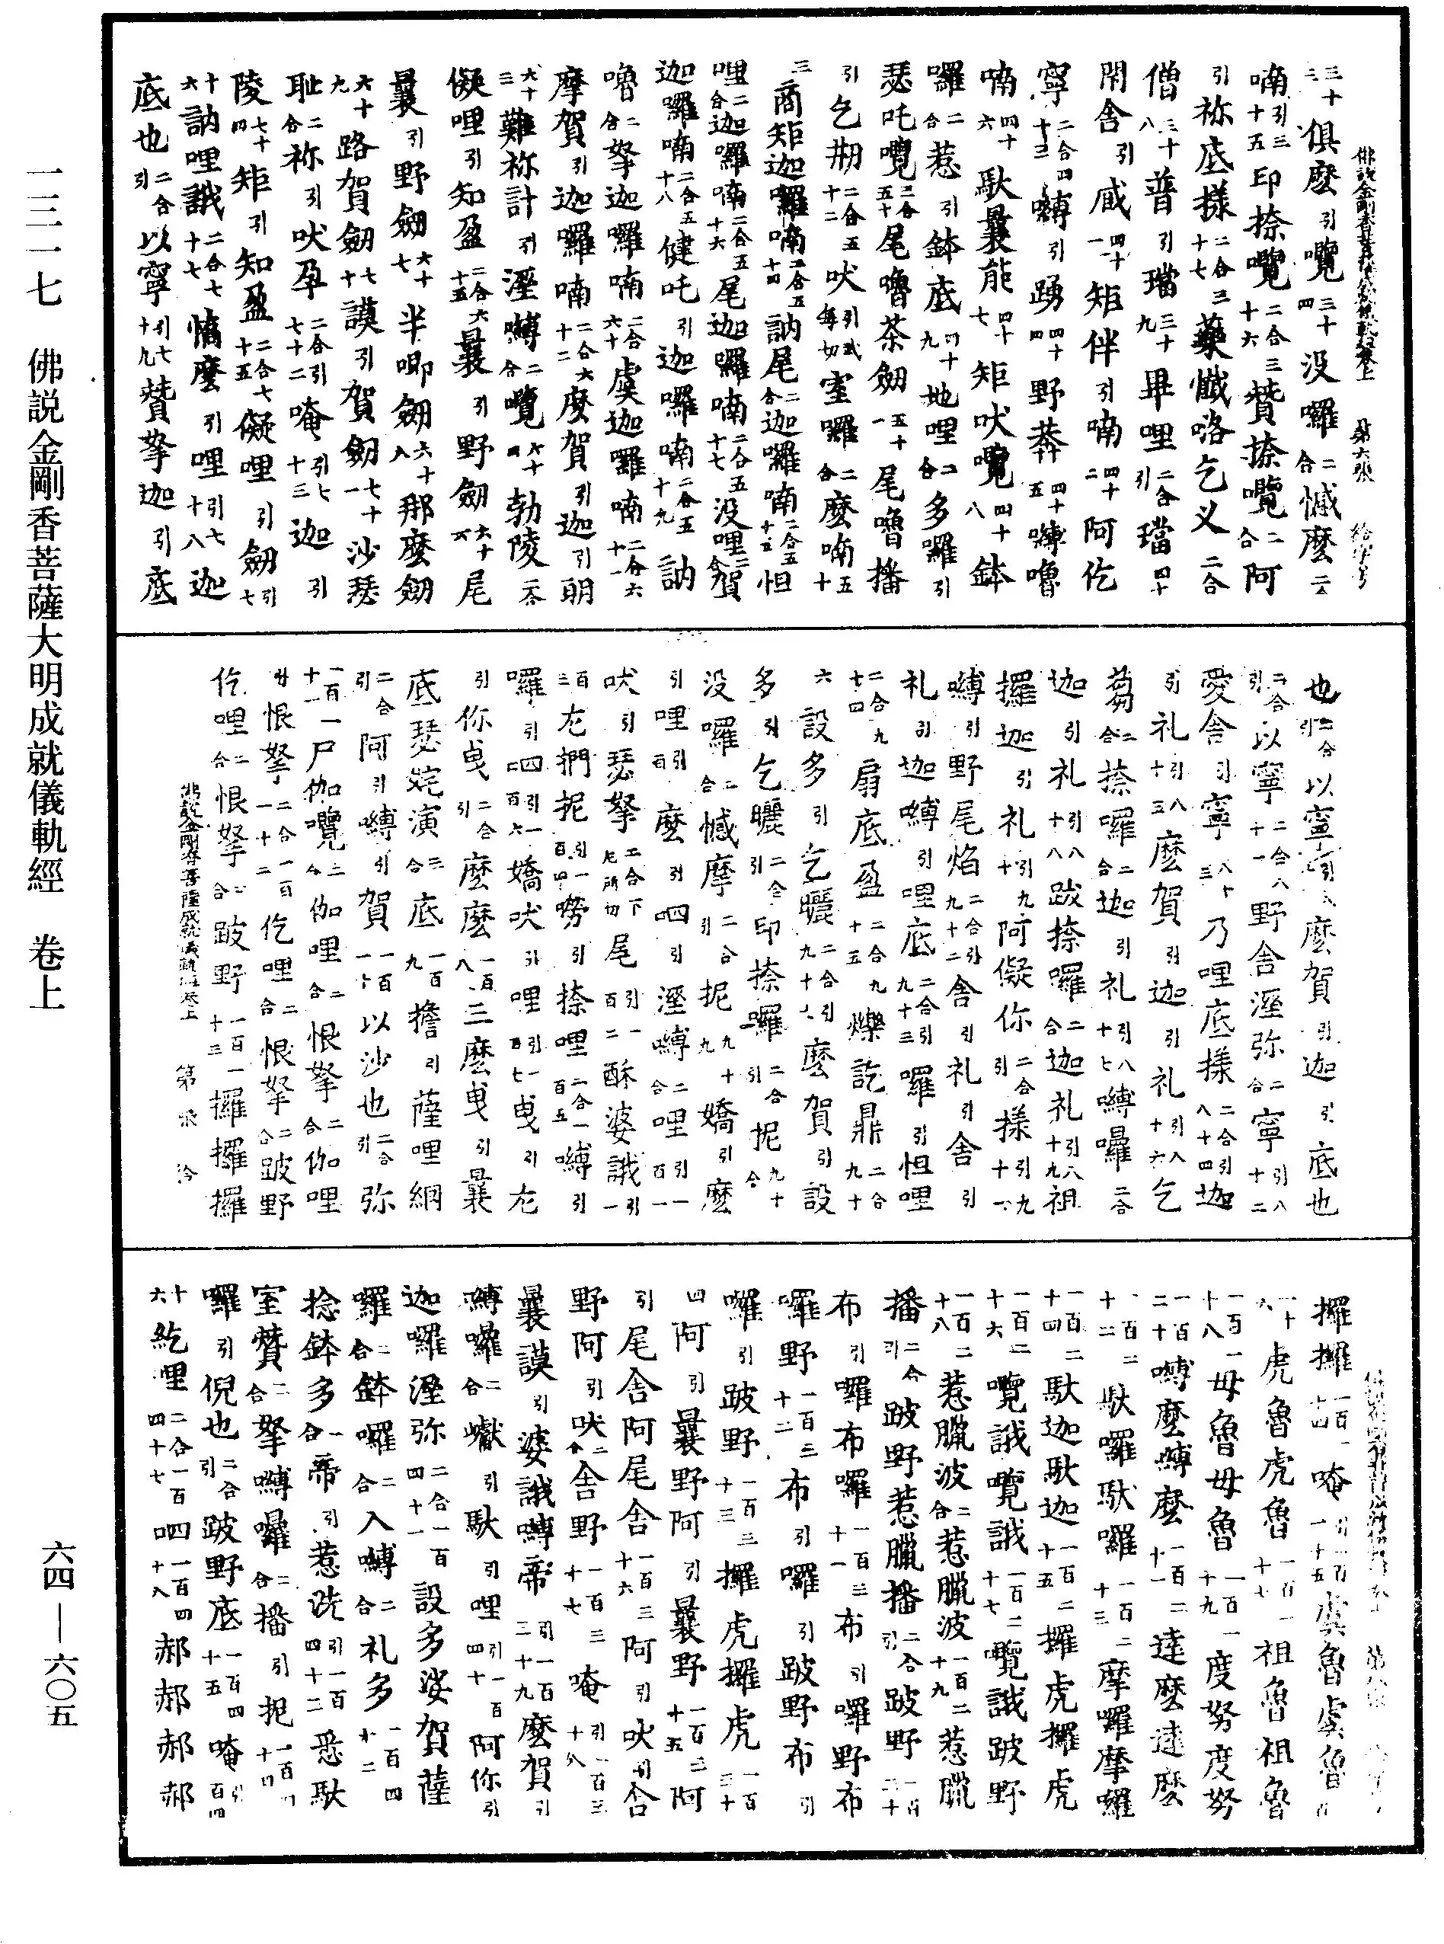 一三一七　佛説金剛香菩薩大明成就儀軌經　卷上
六四—六〇五
佛説金剛香菩薩大明成就儀軌經卷上　第六張　給字号
三十三俱麽引囕三十四没囉二合憾麽二合
喃引三十五印捺囕二合三十六賛捺囕二合阿
引祢底樣二合三十七藥懺咯乞义二合
僧三十八普引璫三十九畢哩二合引璫四十
閉舍引咸四十一矩伴引喃四十二阿仡
寧二合四十三嚩引踴四十四野莽四十五嚩嚕
喃四十六馱曩能四十七矩吠囕四十八鉢
囉二合惹引鉢底四十九地哩二合多囉引
瑟吒囕二合五十尾嚕茶劔五十一尾嚕播
引乞朔二合五十二吠引武每切室囉二合麽喃五十
三商矩迦囉喃二合五十四訥尾二合迦囉喃二合五十五怛
哩二合迦囉喃二合五十六尾迦囉喃二合五十七没哩二合賀
迦囉喃二合五十八健吒引迦囉喃二合五十九訥
嚕二合拏迦囉喃二合六十虞迦囉喃二合六十一
摩賀引迦囉喃二合六十二麽賀引迦引朗
六十三難祢計引溼嚩二合囕六十四勃陵二合
儗哩引知盈二合六十五曩引野劔六十六尾
曩引野劔六十七半唧劔六十八那麽劔
六十九路賀劔七十謨引賀劔七十一沙瑟
耻二合祢引吠孕二合引七十二唵引七十三迦引
陵七十四矩引知盈二合七十五儗哩引劔引七
十六訥哩誐二合七十七愶麽引哩引七十八迦
底也二合引以寧引七十九賛拏迦引底
也二合引以寧引麽賀引迦引底也
二合引以寧二合八十一野舍溼弥二合寧引八十二
愛舍引寧八十三乃哩底樣二合引八十四迦
引礼引八十五麽賀引迦引礼引八十六乞
蒭二合捺囉二合迦引礼引八十七嚩囉二合
迦引礼引八十八跋捺囉二合迦礼引八十九祖
攞迦引礼引九十阿儗你二合引樣引九十一
嚩引野尾焰二合引九十二舍引礼引舍引
礼引迦嚩引哩底二合引九十三囉引怛哩
二合九十四扇底盈二合九十五爍訖鼎二合九十
六設多引乞曬二合引九十七麽賀引設
多引乞曬二合引印捺囉二合引抳九十
没囉二合憾摩二合引抳九十九嬌引麽
引哩引一百麽引呬引溼嚩二合哩引一百一
吠引瑟拏二合下尼所切尾引一百二酥婆誐引一
百三左捫抳引一百四嘮引捺哩二合一百五嚩引
囉引呬引一百六嬌吠引哩引一百七曳引左
引你曳二合引麽麽一百八三麽曳引曩
底瑟姹演二合底一百九擔引薩哩網
二合阿引嚩引賀一百一十以沙也二合引弥
一百一十一尸伽囕二合伽哩二合恨拏二合伽哩
恨拏二合一百一十二仡哩二合恨拏二合跛野
仡哩二合恨拏二合跛野一百一十三攞攞攞
佛説金剛香菩薩成就儀軌經卷上　第　張　給
攞攞一百一十四唵引一百一十五虞魯虞魯一百
一十六虎魯虎魯一百一十七祖魯祖魯
一百一十八毋魯毋魯一百一十九度努度努
一百二十嚩麽嚩麽一百二十一達麽達麽
一百二十二馱囉馱囉一百二十三摩囉摩囉
一百二十四馱迦馱迦一百二十五攞虎攞虎
一百二十六囕誐囕誐一百二十七囕誐跛野
一百二十八惹臘波二合惹臘波一百二十九惹臘
播二合引跛野惹臘播二合引跛野一百三十
布引囉布囉一百三十一布引囉野布
囉野一百三十二布引囉引跛野布引
囉引跛野一百三十三攞虎攞虎一百三十
四阿引曩野阿引曩野一百三十五阿
引尾舍阿尾舍一百三十六阿引吠引舍
野阿引吠引舍野一百三十七唵引一百三十八
曩謨引婆誐嚩帝引一百三十九麽賀引
嚩囉二合巘引馱引哩引一百四十阿你引
迦囉溼弥二合一百四十一設多娑賀薩
囉二合鉢囉二合入嚩二合礼多一百四十二
捻鉢多二合帝引惹洗引一百四十三悉馱
室賛二合拏嚩囉二合播引抳一百四十四
囉引倪也二合引跛野底一百四十五唵引一百四
十六紇哩二合一百四十七呬一百四十八郝郝郝郝